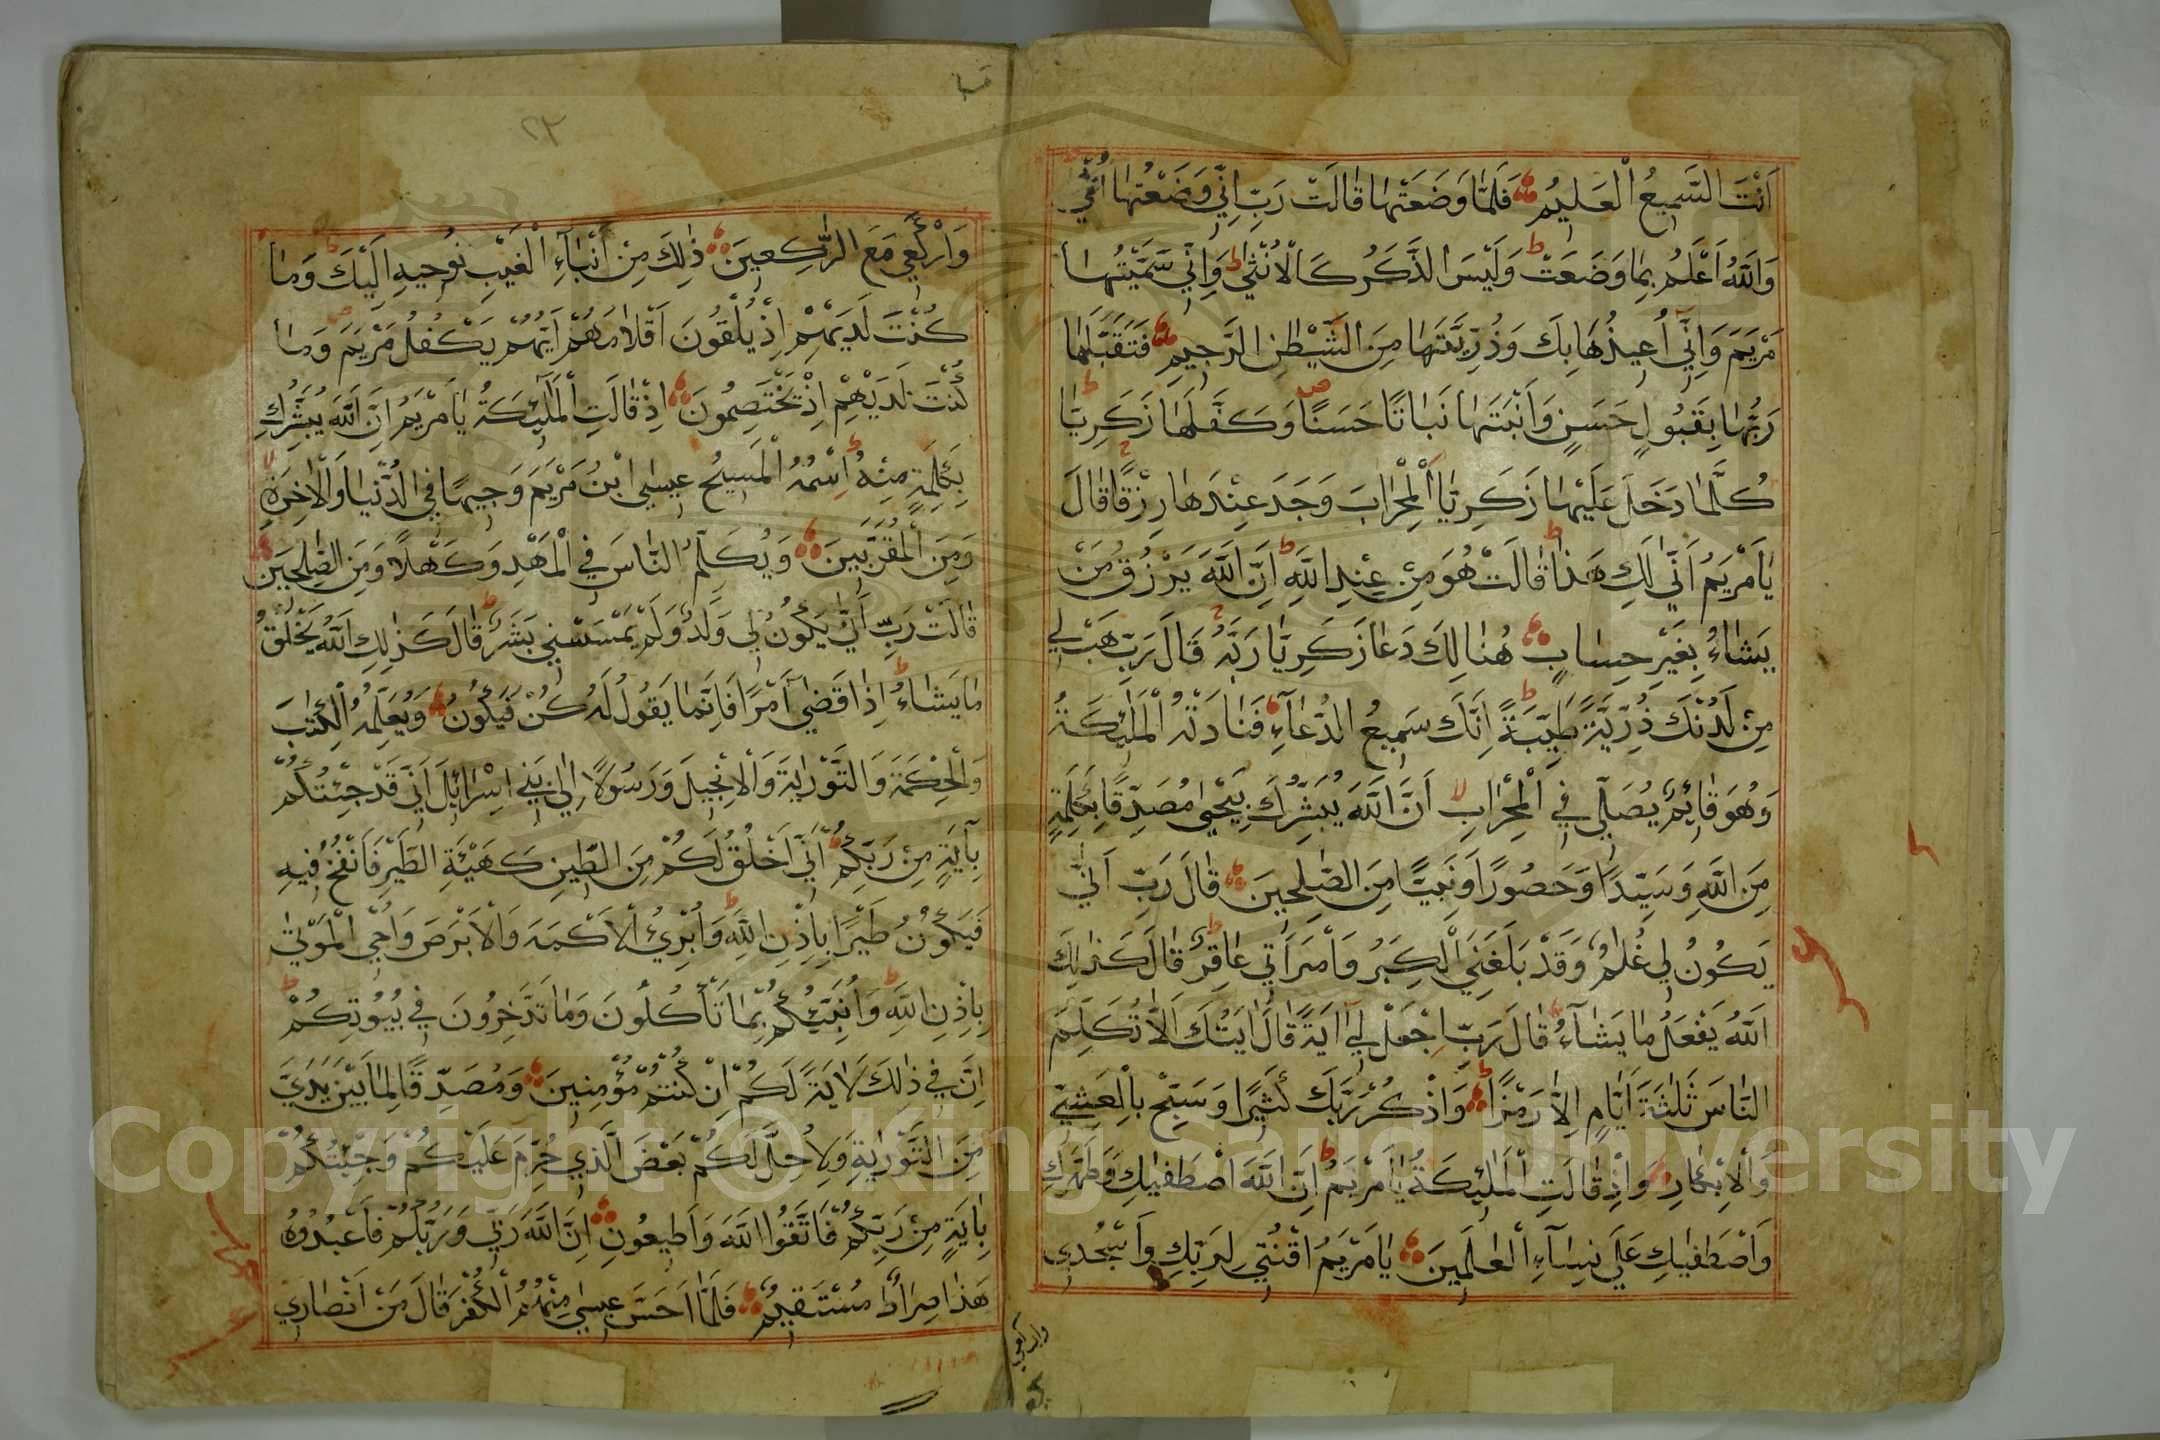 اَنْتَ السَّمِيعُ الْعَلِيمُ فَلَمَّا وَضَعَتْهَا قَالَتْ رَبِّ اِنِّي وَضَعْتُهَا اُنْثٰى
وَاللّٰهُ اَعْلَمُ بِمَا وَضَعَتْ ط وَلَيْسَ الذَّكَرُ كَالْاُنْثٰى ط وَاِنِّي سَمَّيْتُهَا
مَرْيَمَ وَاِنِّي اُعِيذُهَا بِكَ وَذُرِّيَّتَهَا مِنَ الشَّيْطٰنِ الرَّجِيمِ فَتَقَبَّلَهَا
رَبُّهَا بِقَبُولٍ حَسَنٍ وَاَنْبَتَهَا نَبَاتًا حَسَنًا ص وَكَفَّلَهَا زَكَرِيَّا ط
كُلَّمَا دَخَلَ عَلَيْهَا زَكَرِيَّا الْمِحْرَابَ وَجَدَ عِنْدَهَا رِزْقًا ج قَالَ
يَا مَرْيَمُ اَنّٰى لَكِ هٰذَا ط قَالَتْ هُوَ مِنْ عِنْدِ اللّٰهِ ط اِنَّ اللّٰهَ يَرْزُقُ مَنْ
يَشَاءُ بِغَيْرِ حِسَابٍ هُنَالِكَ دَعَا زَكَرِيَّا رَبَّهُ ج قَالَ رَبِّ هَبْ لِي
مِنْ لَدُنْكَ ذُرِّيَّةً طَيِّبَةً ط اِنَّكَ سَمِيعُ الدُّعَآءِ فَنَادَتْهُ الْمَلٰئِكَةُ
وَهُوَ قَائِمٌ يُصَلِّي فِي الْمِحْرَابِ لا اَنَّ اللّٰهَ يُبَشِّرُكَ بِيَحْيٰى مُصَدِّقًا بِكَلِمَةٍ
مِنَ اللّٰهِ وَسَيِّدًا وَحَصُورًا وَنَبِيًّا مِنَ الصّٰلِحِينَ قَالَ رَبِّ اَنّٰى
يَكُونُ لِي غُلٰمٌ وَقَدْ بَلَغَنِيَ الْكِبَرُ وَامْرَاَتِي عَاقِرٌ ط قَالَ كَذٰلِكَ
اللّٰهُ يَفْعَلُ مَا يَشَآءُ قَالَ رَبِّ اجْعَلْ لِي اٰيَةً قَالَ اٰيَتُكَ اَلَّا تُكَلِّمَ
النَّاسَ ثَلٰثَةَ اَيَّامٍ اِلَّا رَمْزًا ط وَاذْكُرْ رَبَّكَ كَثِيرًا وَسَبِّحْ بِالْعَشِيِّ
وَالْاِبْكَارِ وَاِذْ قَالَتِ الْمَلٰئِكَةُ يَا مَرْيَمُ ط اِنَّ اللّٰهَ اصْطَفٰيكِ وَطَهَّرَكِ
وَاصْطَفٰيكِ عَلٰى نِسَآءِ الْعَالَمِينَ يَا مَرْيَمُ اقْنُتِي لِرَبِّكِ وَاسْجُدِي
واركعي
٢٣
وَارْكَعِي مَعَ الرّٰكِعِينَ ذٰلِكَ مِنْ اَنْبَآءِ الْغَيْبِ نُوحِيهِ اِلَيْكَ ط وَمَا
كُنْتَ لَدَيْهِمْ اِذْ يُلْقُونَ اَقْلَامَهُمْ اَيُّهُمْ يَكْفُلُ مَرْيَمَ ص وَمَا
كُنْتَ لَدَيْهِمْ اِذْ يَخْتَصِمُونَ اِذْ قَالَتِ الْمَلٰئِكَةُ يَا مَرْيَمُ اِنَّ اللّٰهَ يُبَشِّرُكِ
بِكَلِمَةٍ مِنْهُ ط اِسْمُهُ الْمَسِيحُ عِيسٰى ابْنُ مَرْيَمَ وَجِيهًا فِي الدُّنْيَا وَالْاٰخِرَةِ لا
وَمِنَ الْمُقَرَّبِينَ وَيُكَلِّمُ النَّاسَ فِي الْمَهْدِ وَكَهْلًا وَمِنَ الصّٰلِحِينَ
قَالَتْ رَبِّ اَنّٰى يَكُونُ لِي وَلَدٌ وَلَمْ يَمْسَسْنِي بَشَرٌ ط قَالَ كَذٰلِكِ اللّٰهُ يَخْلُقُ
مَا يَشَاءُ ط اِذَا قَضٰى اَمْرًا فَاِنَّمَا يَقُولُ لَهُ كُنْ فَيَكُونُ وَيُعَلِّمُهُ الْكِتٰبَ
وَالْحِكْمَةَ وَالتَّوْرٰيةَ وَالْاِنْجِيلَ وَرَسُولًا اِلٰى بَنِي اِسْرَائِلَ اَنِّي قَدْ جِئْتُكُمْ
بِاٰيَةٍ مِنْ رَبِّكُمْ اَنِّي اَخْلُقُ لَكُمْ مِنَ الطِّينِ كَهَيْئَةِ الطَّيْرِ فَاَنْفُخُ فِيهِ
فَيَكُونُ طَيْرًا بِاِذْنِ اللّٰهِ ط وَاُبْرِئُ الْاَكْمَهَ وَالْاَبْرَصَ وَاُحْيِ الْمَوْتٰى
بِاِذْنِ اللّٰهِ ط وَاُنَبِّئُكُمْ بِمَا تَاْكُلُونَ وَمَا تَدَّخِرُونَ فِي بُيُوتِكُمْ ط
اِنَّ فِي ذٰلِكَ لَاٰيَةً لَكُمْ اِنْ كُنْتُمْ مُؤْمِنِينَ وَمُصَدِّقًا لِمَا بَيْنَ يَدَيَّ
مِنَ التَّوْرٰيةِ وَلِاُحِلَّ لَكُمْ بَعْضَ الَّذِي حُرِّمَ عَلَيْكُمْ وَجِئْتُكُمْ
بِاٰيَةٍ مِنْ رَبِّكُمْ فَاتَّقُوا اللّٰهَ وَاَطِيعُونِ اِنَّ اللّٰهَ رَبِّي وَرَبُّكُمْ فَاعْبُدُوهُ
هٰذَا صِرَاطٌ مُسْتَقِيمٌ فَلَمَّا اَحَسَّ عِيسٰى مِنْهُمُ الْكُفْرَ قَالَ مَنْ اَنْصَارِي
Copyright © King Saud University